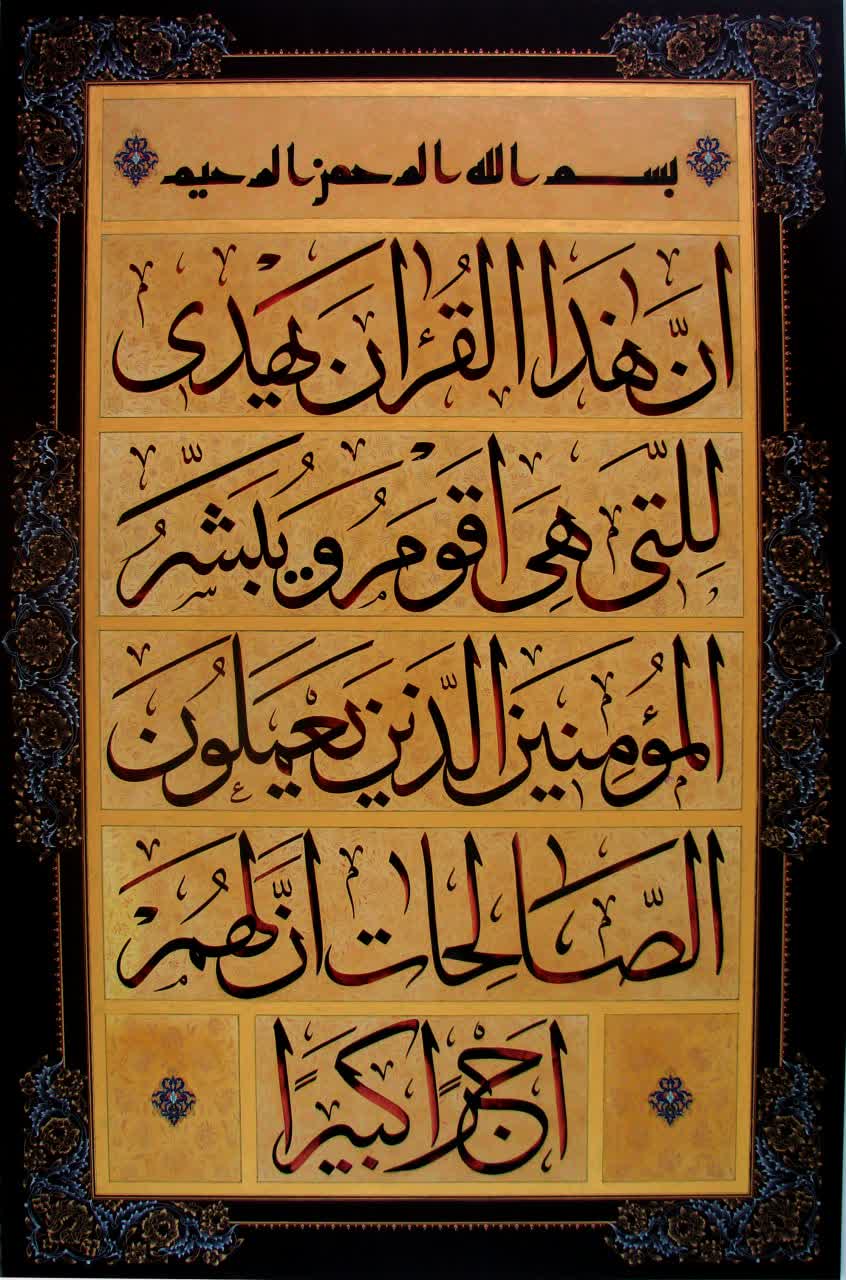 بسم الله الرحمن الرحيم
اِنَّ هٰذَا الْقُرْاٰنَ يَهْدِی
لِلَّتِی هِیَ اَقْوَمُ وَ يُبَشِّرُ
الْمُؤْمِنِينَ الَّذِينَ يَعْمَلُونَ
الصَّالِحَاتِ اَنَّ لَهُمْ
اَجْرًا كَبِيرًا